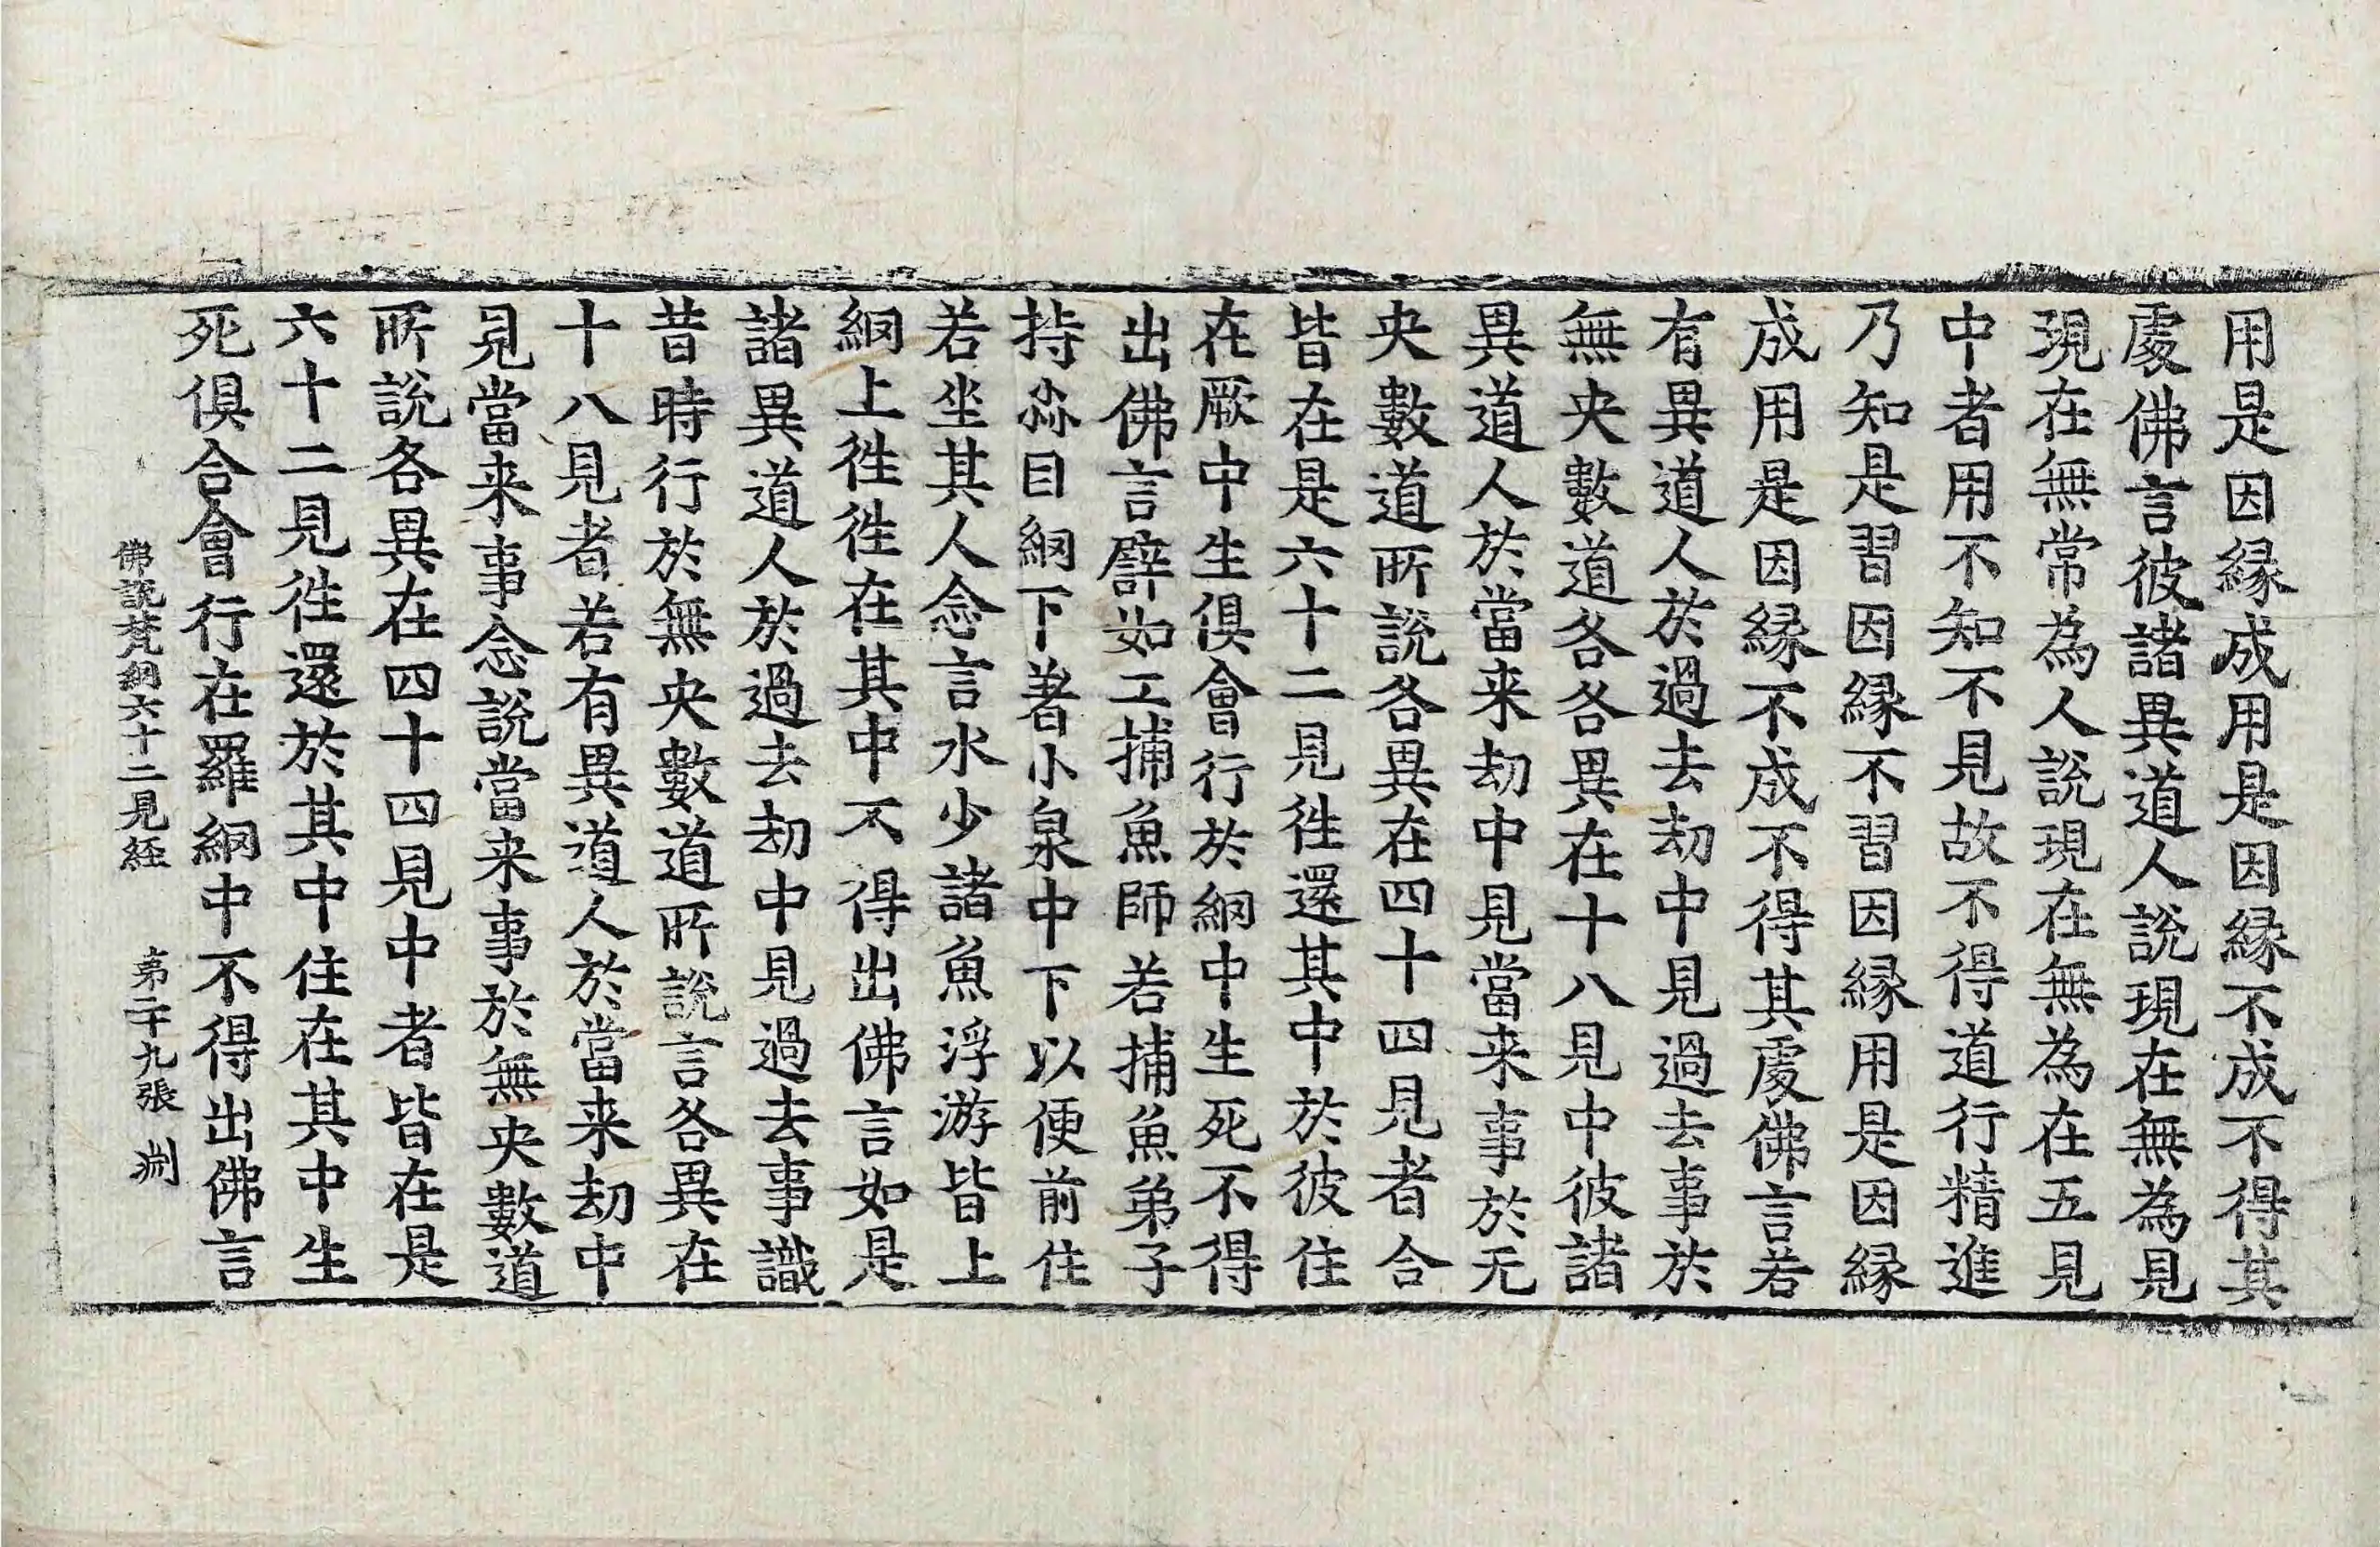 用是因縁成用是因縁不成不得其
處佛言彼諸異道人說現在無為見
現在無常為人說現在無為在五見
中者用不知不見故不得道行精進
乃知是習因縁不習因縁用是因縁
成用是因縁不成不得其處佛言若
有異道人於過去劫中見過去事於
無央數道各各異在十八見中彼諸
異道人於當来劫中見當来事於无
央數道所說各異在四十四見者合
皆在是六十二見徃還其中於彼住
在厥中生俱會行於網中生死不得
出佛言譬如工捕魚師若捕魚弟子
持㵘目網下著小泉中下以便前住
若坐其人念言水少諸魚浮游皆上
網上徃徃在其中不得出佛言如是
諸異道人於過去劫中見過去事識
昔時行於無央數道所說言各異在
十八見者若有異道人於當来劫中
見當来事念說當来事於無央數道
所說各異在四十四見中者皆在是
六十二見徃還於其中住在其中生
死俱合會行在羅網中不得出佛言
佛說梵網六十二見経 苐二十九張 渕